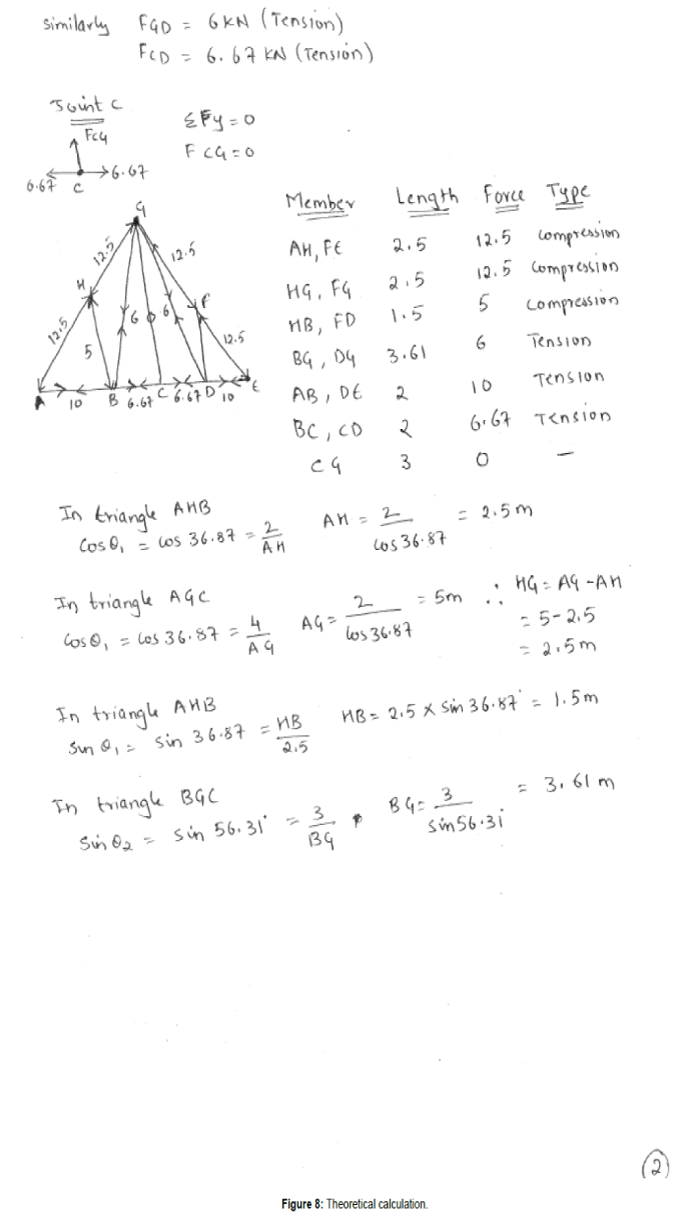 Similarly FGD = 6KN (Tension)
FCD = 6.67 KN (Tension)
Joint C
FCG
6.67 C 6.67
ΣFy = 0
FCG = 0
G
12.5 12.5
H F
12.5 6 6 12.5
5
A 10 B 6.67 C 6.67 D 10 E
Member Length Force Type
AH, FE 2.5 12.5 Compression
HG, FG 2.5 12.5 Compression
HB, FD 1.5 5 Compression
BG, DG 3.61 6 Tension
AB, DE 2 10 Tension
BC, CD 2 6.67 Tension
CG 3 0 –
In triangle AHB
Cosθ1 = cos 36.87 = 2/AH AH = 2/cos 36.87 = 2.5m
In triangle AGC
Cosθ1 = cos 36.87 = 4/AG AG = 2/cos 36.87 = 5m ∴ HG = AG - AH
= 5 - 2.5
= 2.5m
In triangle AHB
Sin θ1 = sin 36.87 = HB/2.5 HB = 2.5 x sin 36.87° = 1.5m
In triangle BGC
Sin θ2 = sin 56.31° = 3/BG BG = 3/sin 56.31 = 3.61 m
2
Figure 8: Theoretical calculation.